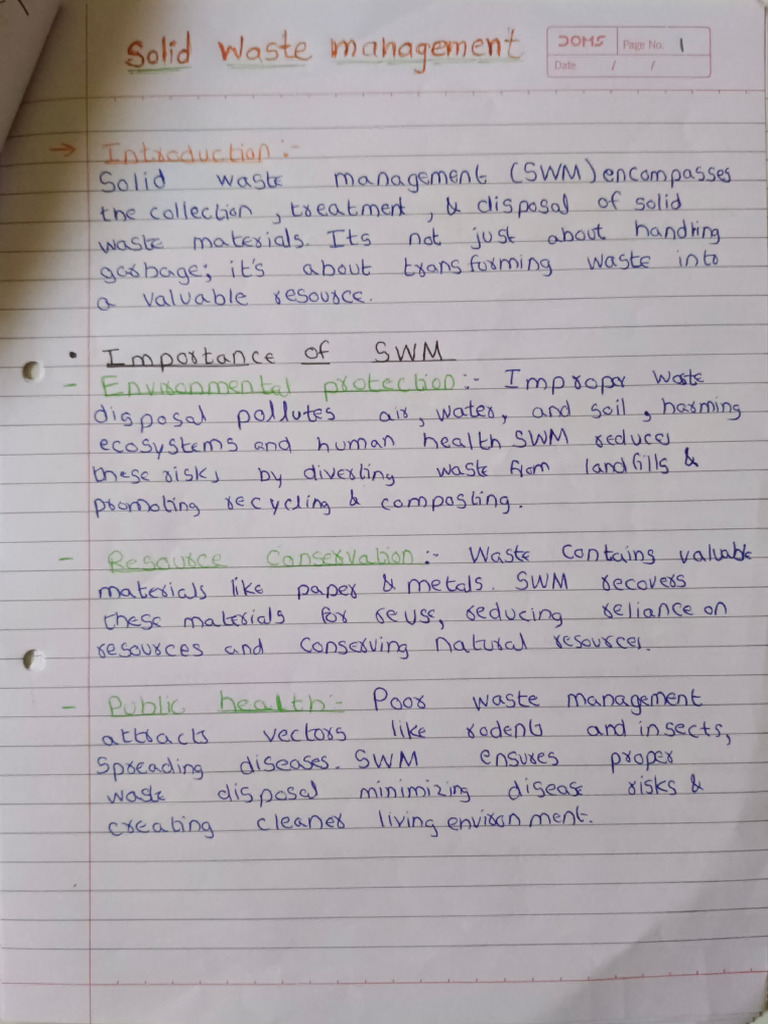 Solid Waste management
DOMS Page No. 1
Date / /
→ Introduction :-
Solid waste management (SWM) encompasses
the collection, treatment, & disposal of solid
waste materials. Its not just about handling
garbage; it's about transforming waste into
a valuable resource.
• Importance of SWM
- Environmental protection:- Improper waste
disposal pollutes air, water, and soil, harming
ecosystems and human health SWM reduces
these risks by diverting waste from landfills &
promoting recycling & composting.
- Resource Conservation:- Waste contains valuable
materials like paper & metals. SWM recovers
these materials for reuse, reducing reliance on
resources and conserving natural resources.
- Public health:- Poor waste management
attracts vectors like rodents and insects,
spreading diseases. SWM ensures proper
waste disposal minimizing disease risks &
creating cleaner living environment.